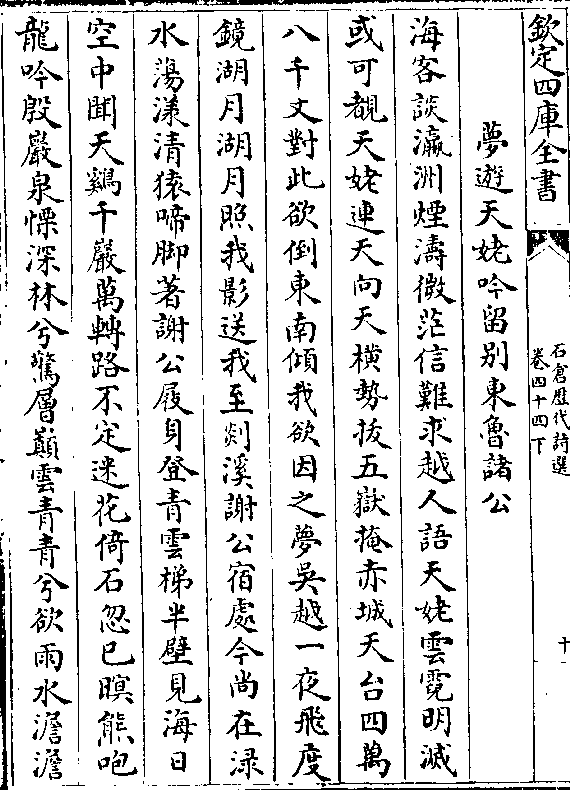 欽定四庫全書
石倉歷代詩選
卷四十四下
十
夢遊天姥吟留别東魯諸公
海客談瀛洲煙濤微茫信難求越人語天姥雲霓明滅
或可覩天姥連天向天橫勢拔五嶽掩赤城天台四萬
八千丈對此欲倒東南傾我欲因之夢吳越一夜飛度
鏡湖月湖月照我影送我至剡溪謝公宿處今尚在淥
水蕩漾清猿啼脚著謝公屐身登青雲梯半壁見海日
空中聞天鷄千巖萬轉路不定迷花倚石忽已暝熊咆
龍吟殷巖泉慄深林兮驚層巔雲青青兮欲雨水澹澹